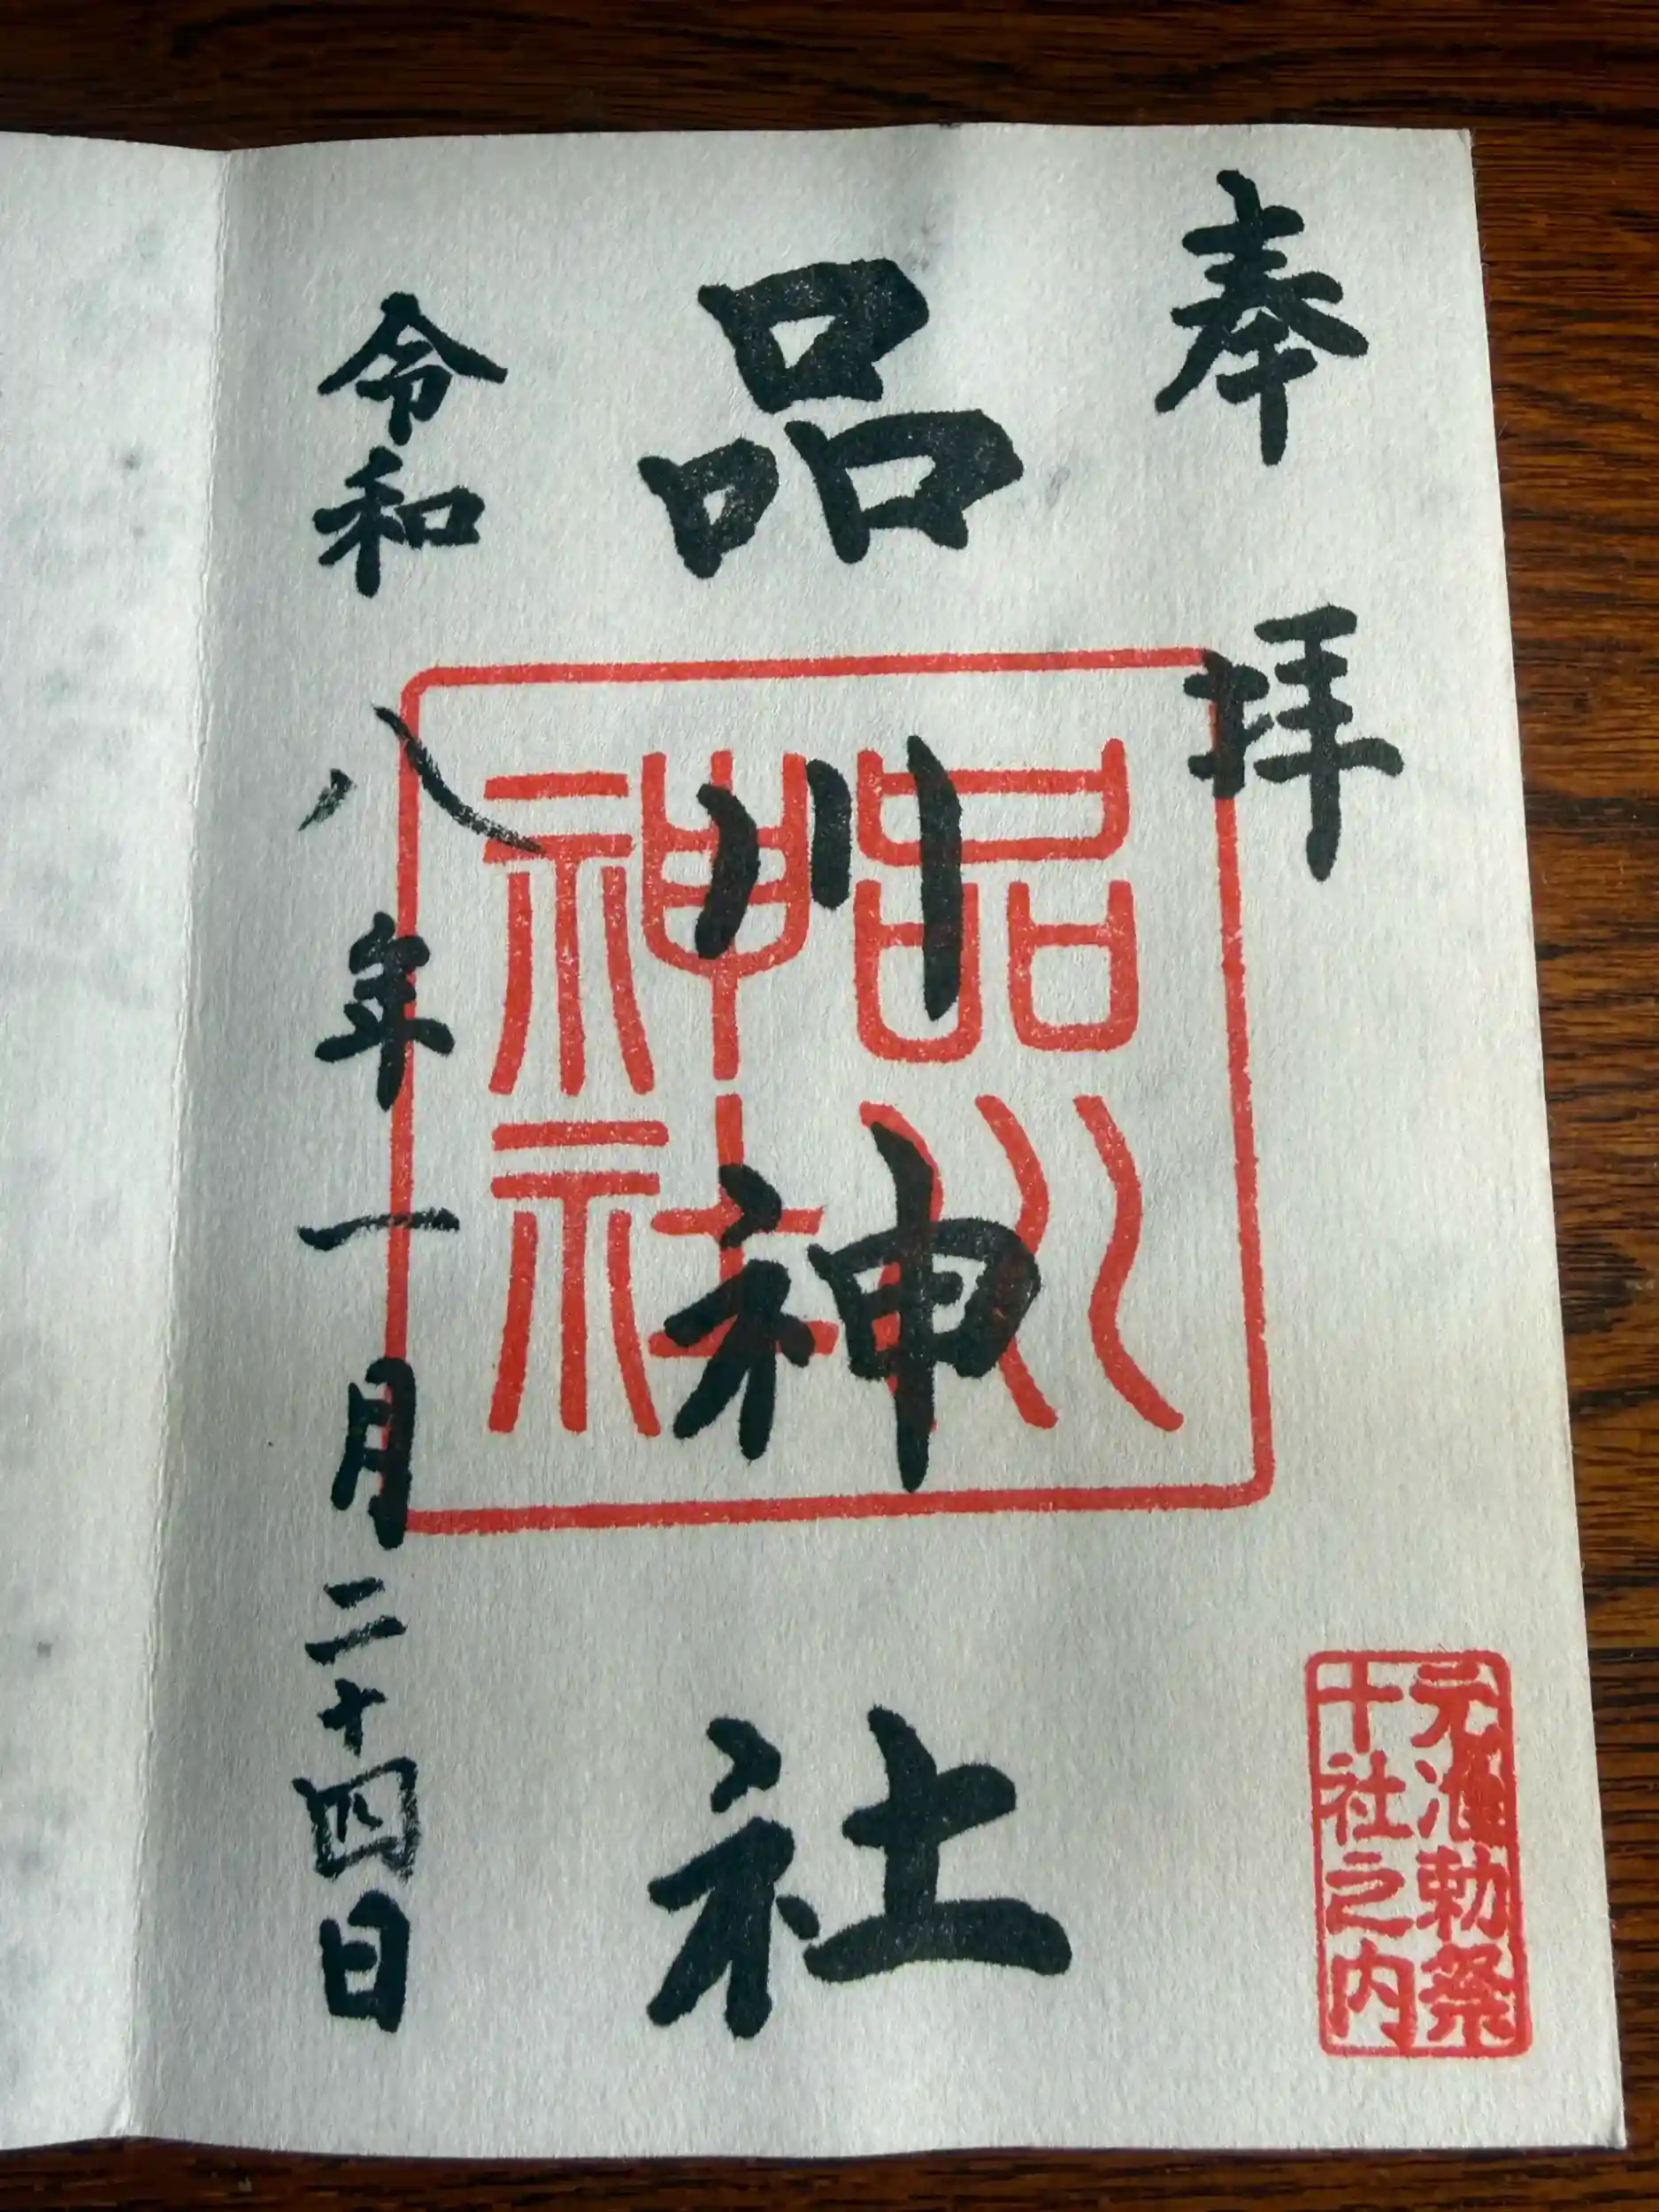 奉拝
品川神社
品川
神社
令和八年一月二十四日
元准勅祭
十社之内